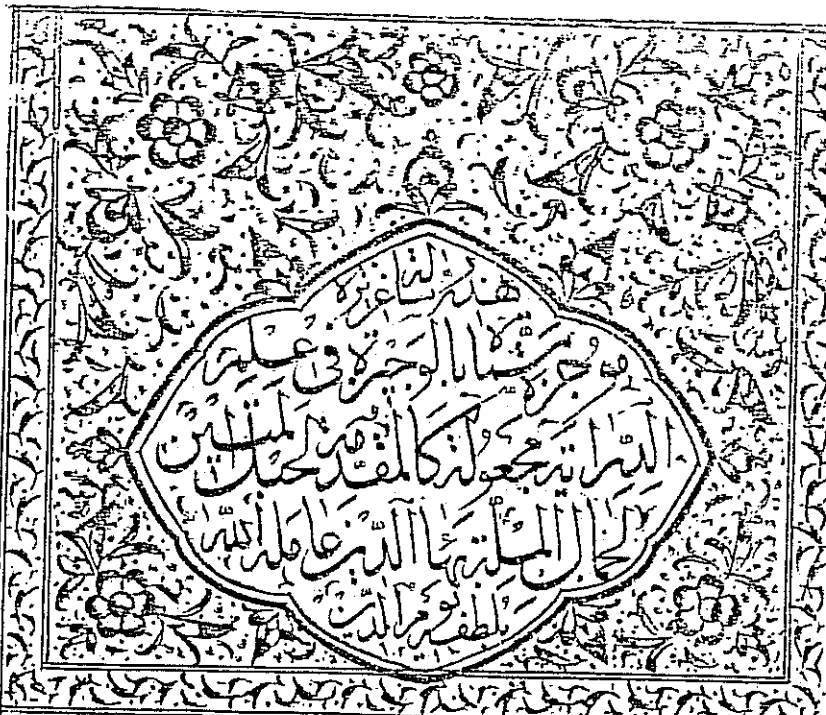 هذه رسالة عزيزة
موجزة مسماة بالوجيزة في علم
الدراية مجعولة كالمقدمة لحبل المتين
لجمال الملة بهاء الدين عامله الله
بلطفه يوم الدين